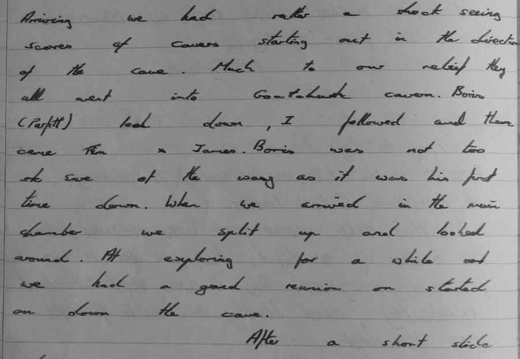 Arriving we had rather a shock seeing
scores of cavers starting out in the direction
of the cave. Much to our relief they
all went into Goatchurch cavern. Boris
(Parfitt) lead down, I followed and then
came Tim x James. Boris was not too
sure of the way as it was his first
time down. When we arrived in the main
chamber we split up and looked
around. At exploring for a while and
we had a grand reunion on started
on down the cave.
After a short slide